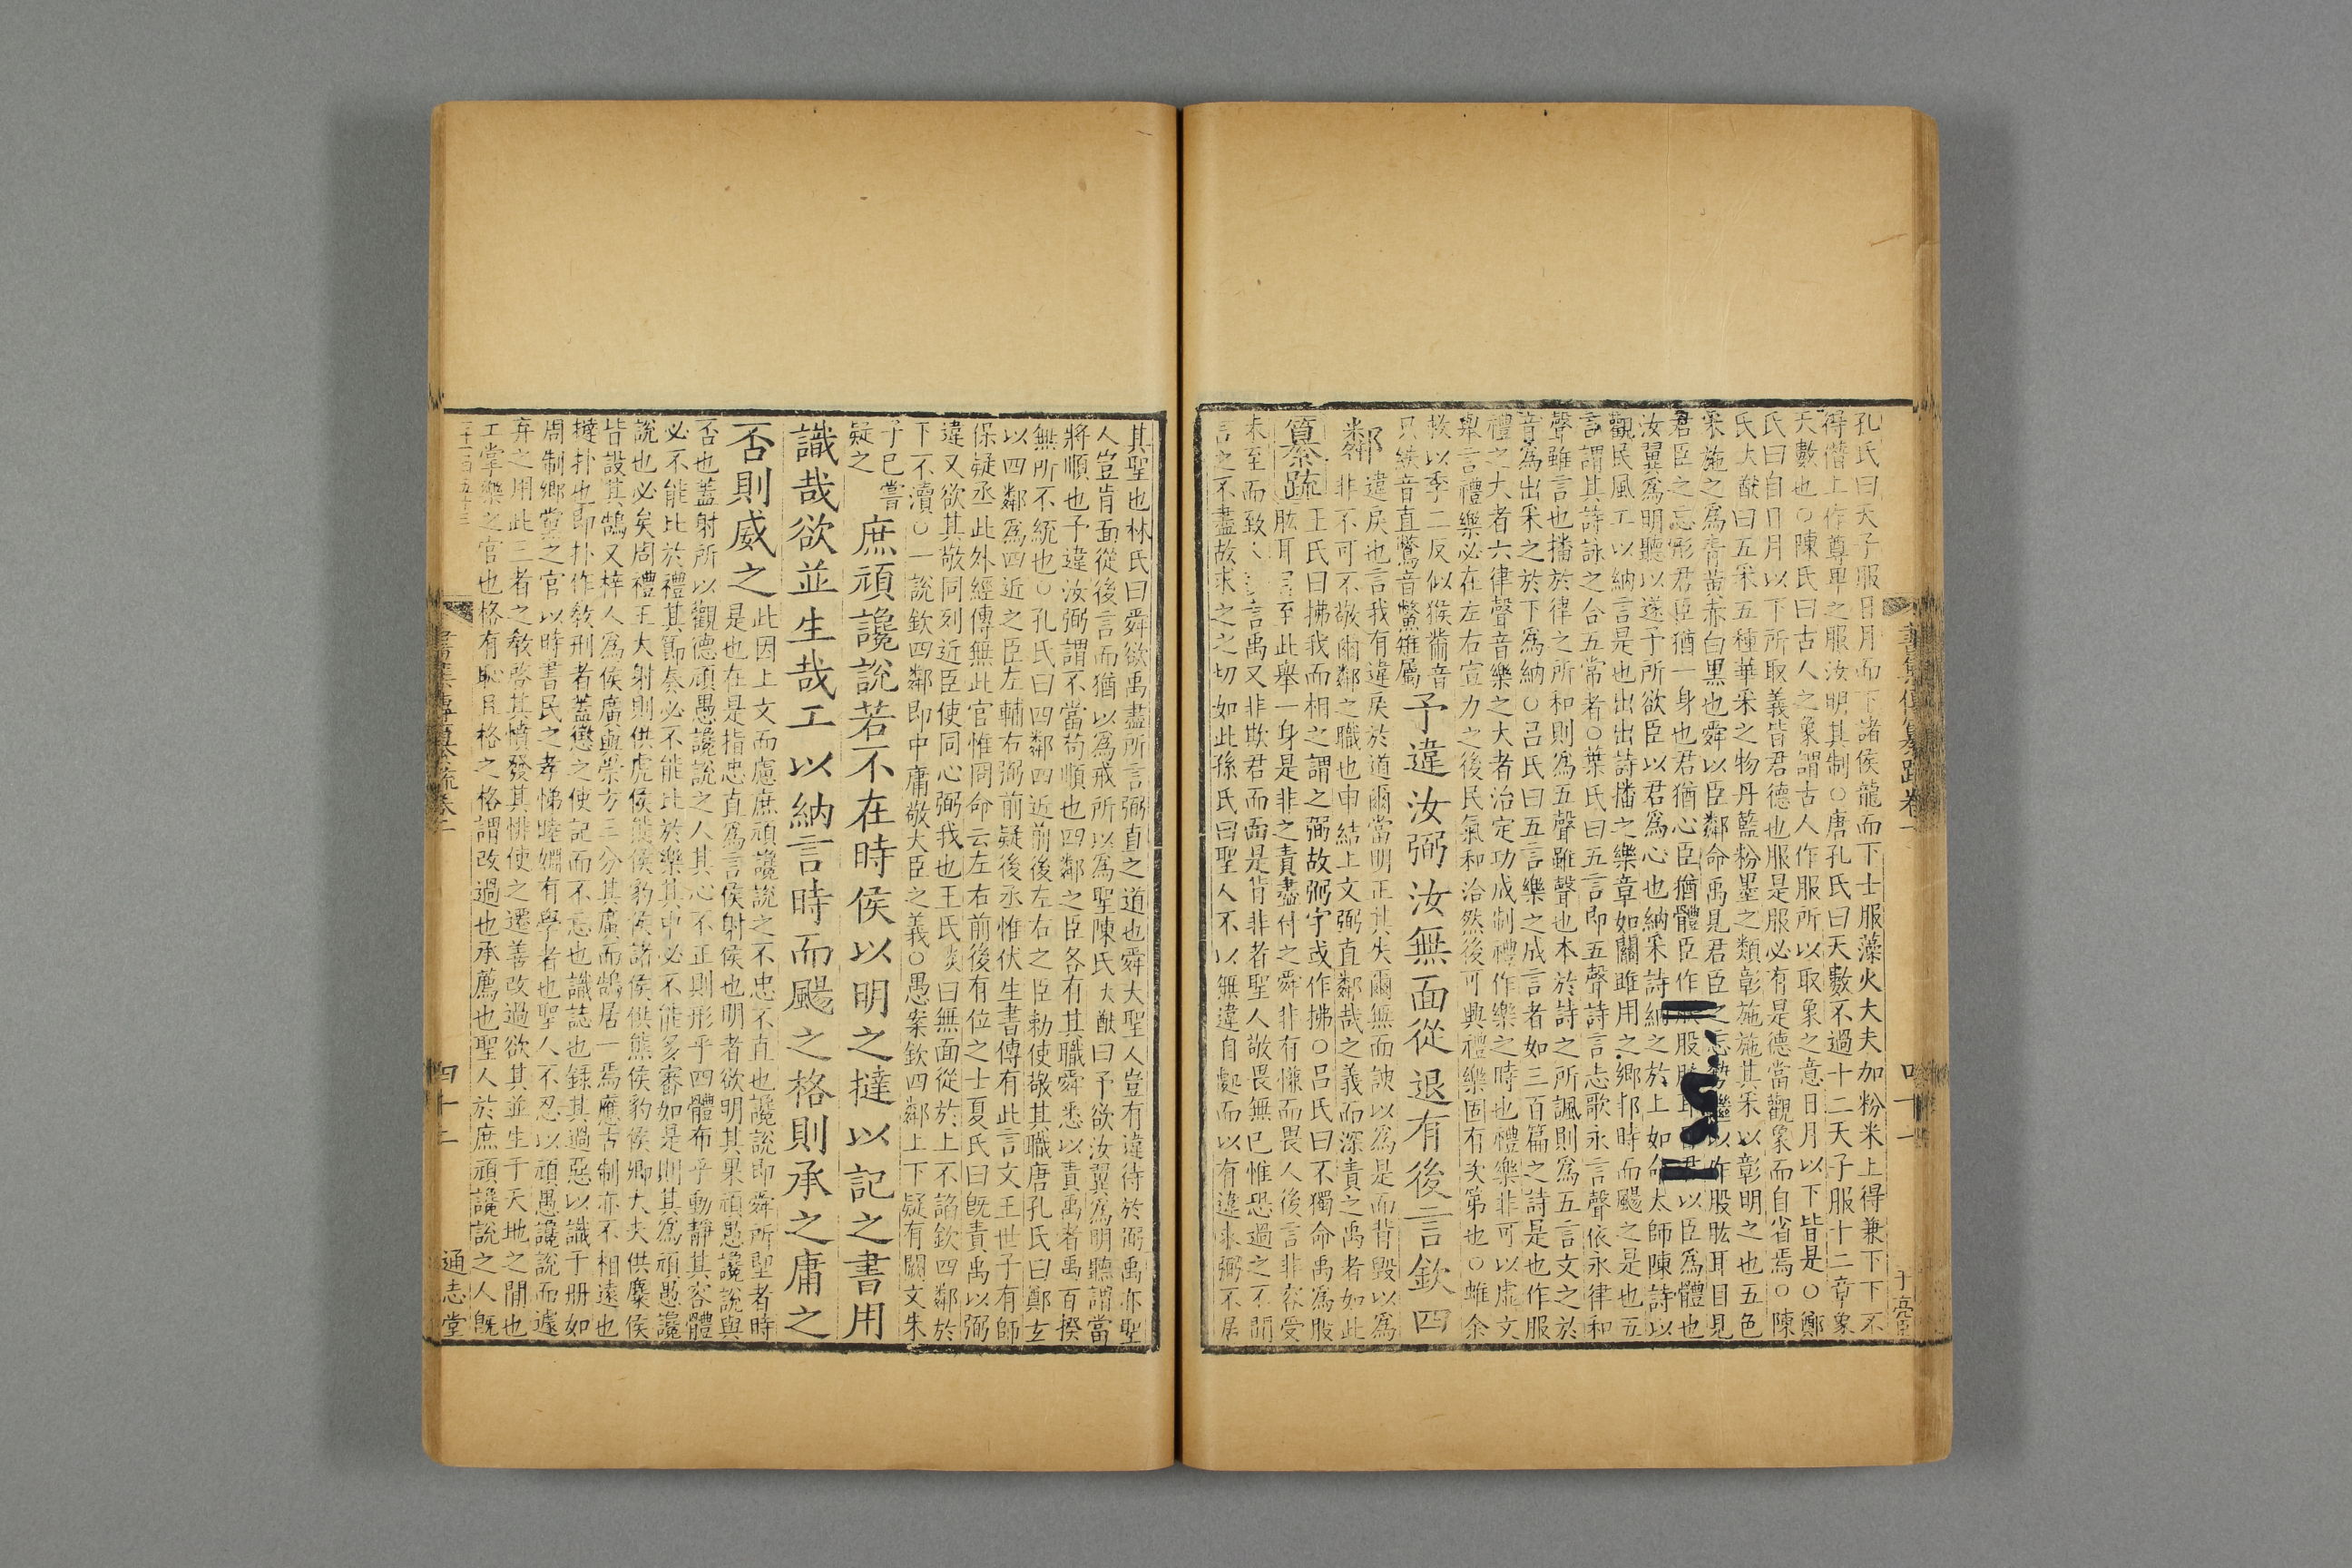 孔氏曰天子服日月而下諸侯龍而下士服藻火大夫加粉米上得兼下下不
得僭上作尊卑之服汝明其制○唐孔氏曰天數不過十二天子服十二章象
天數也○陳氏曰古人之象謂古人作服所以取象之意日月以下皆是○鄭
氏曰自日月以下所取義皆君德也服是服必有是德當觀象而自省焉○陳
氏大猷曰五采五種華采之物丹藍粉墨之類彰施施其采以彰明之也五色
采施之為青黃赤白黑也舜以臣鄰命禹見君臣之忘勢繼以作股肱耳目見
君臣之忘形君臣猶一身也君猶心臣猶體臣作股肱耳以臣為體也
汝翼為明聽以遂予所欲臣以君為心也納采詩納之於上如命太師陳詩以
觀民風工以納言是也出出詩播之樂章如關雎用之鄉邦時而颺之是也五
言謂其詩詠之合五常者○葉氏曰五言即五聲詩言志歌永言聲依永律和
聲雖言也播於律之所和則為五聲雖聲也本於詩之所諷則為五言文之於
音為出采之於下為納○呂氏曰五言樂之成言者如三百篇之詩是也作服
禮之大者六律聲音樂之大者治定功成制禮作樂之時也禮樂非可以虛文
舉言禮樂必在左右宣力之後民氣和洽然後可興禮樂固有次第也○蜼余
救以季二反似猴黹音
只紩音直鷩音鱉雉屬
予違汝弼汝無面從退有後言欽四
鄰
違戾也言我有違戾於道爾當明正其失爾無面諛以為是而背毀以為
非不可不敬爾鄰之職也申結上文弼直鄰哉之義而深責之禹者如此
纂疏
王氏曰拂我而相之謂之弼故弼字或作拂○呂氏曰不獨命禹為股
肱耳目至此舉一身是非之責盡付之舜非有慊而畏人後言非容受
未至而致言禹又非欺君而面是背非者聖人敬畏無已惟恐過之不聞
言之不盡故求之之切如此孫氏曰聖人不以無違自處而以有違求弼不居
其聖也林氏曰舜欲禹盡所言弼直之道也舜大聖人豈有違待於弼禹亦聖
人豈肯面從後言而猶以為戒所以為聖陳氏大猷曰予欲汝翼為明聽謂當
將順也予違汝弼謂不當苟順也四鄰之臣各有其職舜悉以責禹者禹百揆
無所不統也○孔氏曰四鄰四近前後左右之臣勑使敬其職唐孔氏曰鄭玄
以四鄰為四近之臣左輔右弼前疑後丞惟伏生書傳有此言文王世子有師
保疑丞此外經傳無此官惟冏命云左右前後有位之士夏氏曰既責禹以弼
違又欲其敬同列近臣使同心弼我也王氏炎曰無面從於上不諂欽四鄰於
下不瀆○一說欽四鄰即中庸敬大臣之義○愚案欽四鄰上下疑有闕文朱
子已嘗
疑之
庶頑讒說若不在時侯以明之撻以記之書用
識哉欲並生哉工以納言時而颺之格則承之庸之
否則威之
此因上文而慮庶頑讒說之不忠不直也讒說即舜所堲者時
是也在是指忠直為言侯射侯也明者欲明其果頑愚讒說與
否也蓋射所以觀德頑愚讒說之人其心不正則形乎四體布乎動靜其容體
必不能比於禮其節奏必不能比於樂其中必不能多審如是則其為頑愚讒
說也必矣周禮王大射則供虎侯熊侯豹侯諸侯供熊侯豹侯卿大夫供麋侯
皆設其鵠又梓人為侯廣與崇方三分其廣而鵠居一焉應古制亦不相遠也
撻扑也即扑作教刑者蓋懲之使記而不忘也識誌也錄其過惡以識于冊如
周制鄉黨之官以時書民之孝悌睦婣有學者也聖人不忍以頑愚讒說而遽
弃之用此三者之教啓其憤發其悱使之遷善改過欲其並生于天地之間也
工掌樂之官也格有恥且格之格謂改過也承薦也聖人於庶頑讒說之人既
書集傳纂疏卷一
四十二
通志堂